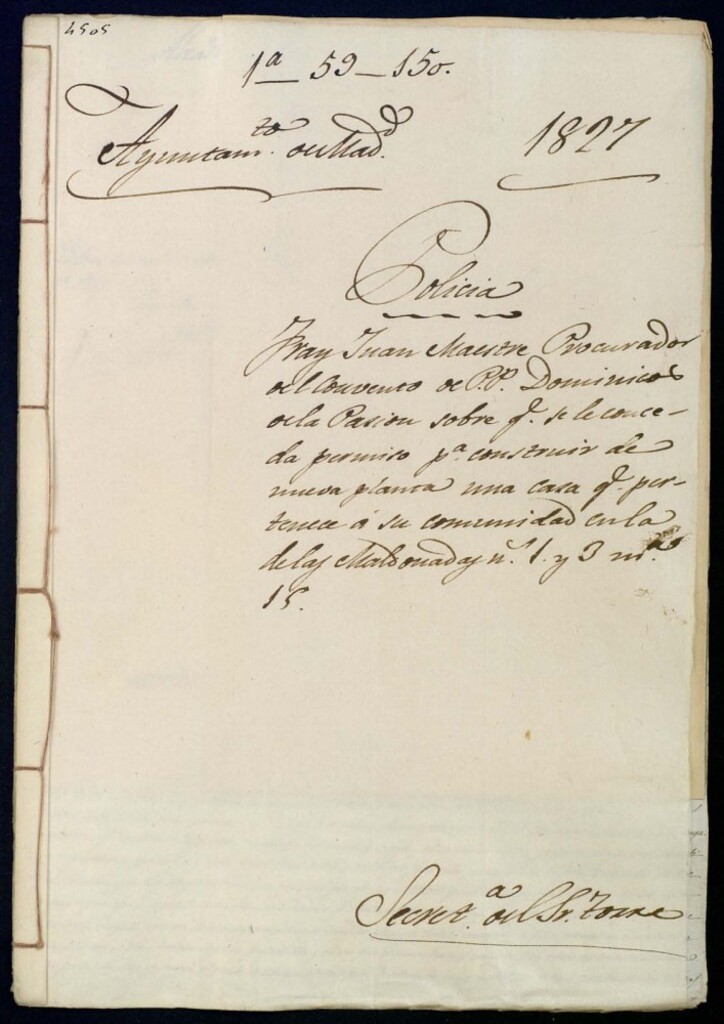 4505
1ª—59—150.
Ayuntamto. de Madd. 1827
Policia
Fray Juan Maestre Procurador
del Convento de P.P. Dominicos
de la Pasion sobre q. se le conce-
da permiso pª. construir de
nueva planta una casa q. per-
tenece á su comunidad en la
de las Maldonadas n.º 1. y 3 m.ªª
15.
Secretª. del Sr. Torre